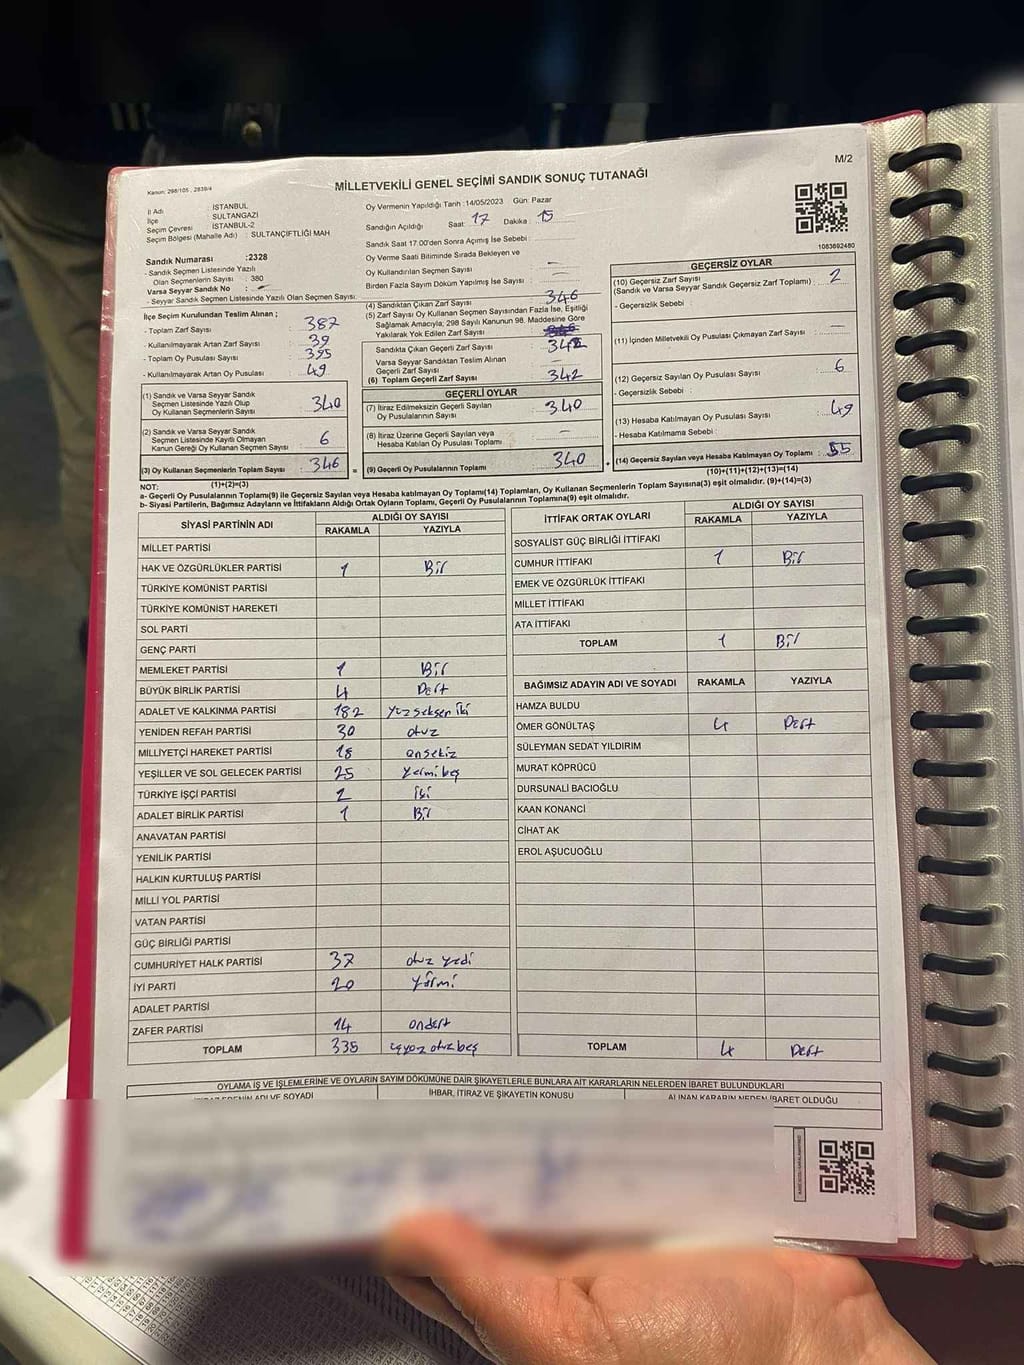 M/2
Kanun: 298/105 , 2839/4
MİLLETVEKİLİ GENEL SEÇİMİ SANDIK SONUÇ TUTANAĞI
İl Adı : İSTANBUL
İlçe SULTANGAZİ
Seçim Çevresi İSTANBUL-2
Seçim Bölgesi (Mahalle Adı) : SULTANÇİFTLİĞİ MAH
Sandık Numarası :2328
- Sandık Seçmen Listesinde Yazılı
Olan Seçmenlerin Sayısı : 380
Varsa Seyyar Sandık No : -
- Seyyar Sandık Seçmen Listesinde Yazılı Olan Seçmen Sayısı
Oy Vermenin Yapıldığı Tarih :14/05/2023 Gün: Pazar
Sandığın Açıldığı Saat: 17 Dakika : 15
Sandık Saat 17:00'den Sonra Açılmış İse Sebebi :
Oy Verme Saati Bitiminde Sırada Bekleyen ve
Oy Kullandırılan Seçmen Sayısı : —
Birden Fazla Sayım Döküm Yapılmış İse Sayısı : —
1083692480
İlçe Seçim Kurulundan Teslim Alınan ;
- Toplam Zarf Sayısı : 387
- Kullanılmayarak Artan Zarf Sayısı : 39
- Toplam Oy Pusulası Sayısı : 395
- Kullanılmayarak Artan Oy Pusulası : 49
(1) Sandık ve Varsa Seyyar Sandık
Seçmen Listesinde Yazılı Olup
Oy Kullanan Seçmenlerin Sayısı : 340
(2) Sandık ve Varsa Seyyar Sandık
Seçmen Listesinde Kayıtlı Olmayan
Kanun Gereği Oy Kullanan Seçmen Sayısı : 6
(3) Oy Kullanan Seçmenlerin Toplam Sayısı : 346
(1)+(2)=(3)
(4) Sandıktan Çıkan Zarf Sayısı : 346
(5) Zarf Sayısı Oy Kullanan Seçmen Sayısından Fazla İse, Eşitliği
Sağlamak Amacıyla; 298 Sayılı Kanunun 98. Maddesine Göre
Yakılarak Yok Edilen Zarf Sayısı :
Sandıkta Çıkan Geçerli Zarf Sayısı : 342
Varsa Seyyar Sandıktan Teslim Alınan
Geçerli Zarf Sayısı : —
(6) Toplam Geçerli Zarf Sayısı : 342
GEÇERLİ OYLAR
(7) İtiraz Edilmeksizin Geçerli Sayılan
Oy Pusulalarının Sayısı : 340
(8) İtiraz Üzerine Geçerli Sayılan veya
Hesaba Katılan Oy Pusulası Toplamı : —
= (9) Geçerli Oy Pusulalarının Toplamı : 340 +
GEÇERSİZ OYLAR
(10) Geçersiz Zarf Sayısı : 2
(Sandık ve Varsa Seyyar Sandık Geçersiz Zarf Toplamı) :
- Geçersizlik Sebebi :
(11) İçinden Milletvekili Oy Pusulası Çıkmayan Zarf Sayısı : —
(12) Geçersiz Sayılan Oy Pusulası Sayısı : 6
- Geçersizlik Sebebi :
(13) Hesaba Katılmayan Oy Pusulası Sayısı : 49
- Hesaba Katılmama Sebebi :
(14) Geçersiz Sayılan veya Hesaba Katılmayan Oy Toplamı : 55
(10)+(11)+(12)+(13)=(14)
NOT:
a- Geçerli Oy Pusulalarının Toplamı(9) ile Geçersiz Sayılan veya Hesaba katılmayan Oy Toplamı(14) Toplamları, Oy Kullanan Seçmenlerin Toplam Sayısına(3) eşit olmalıdır. (9)+(14)=(3)
b- Siyasi Partilerin, Bağımsız Adayların ve İttifakların Aldığı Ortak Oyların Toplamı, Geçerli Oy Pusulalarının Toplamına(9) eşit olmalıdır.
SİYASİ PARTİNİN ADI ALDIĞI OY SAYISI
RAKAMLA YAZIYLA
MİLLET PARTİSİ
HAK VE ÖZGÜRLÜKLER PARTİSİ 1 Bir
TÜRKİYE KOMÜNİST PARTİSİ
TÜRKİYE KOMÜNİST HAREKETİ
SOL PARTİ
GENÇ PARTİ
MEMLEKET PARTİSİ 1 Bir
BÜYÜK BİRLİK PARTİSİ 4 Dört
ADALET VE KALKINMA PARTİSİ 182 yüzseksen iki
YENİDEN REFAH PARTİSİ 30 otuz
MİLLİYETÇİ HAREKET PARTİSİ 18 onsekiz
YEŞİLLER VE SOL GELECEK PARTİSİ 25 yirmi beş
TÜRKİYE İŞÇİ PARTİSİ 2 iki
ADALET BİRLİK PARTİSİ 1 Bir
ANAVATAN PARTİSİ
YENİLİK PARTİSİ
HALKIN KURTULUŞ PARTİSİ
MİLLİ YOL PARTİSİ
VATAN PARTİSİ
GÜÇ BİRLİĞİ PARTİSİ
CUMHURİYET HALK PARTİSİ 37 otuz yedi
İYİ PARTİ 20 yirmi
ADALET PARTİSİ
ZAFER PARTİSİ 14 ondört
TOPLAM 335 üçyüz otuz beş
İTTİFAK ORTAK OYLARI ALDIĞI OY SAYISI
RAKAMLA YAZIYLA
SOSYALİST GÜÇ BİRLİĞİ İTTİFAKI
CUMHUR İTTİFAKI 1 Bir
EMEK VE ÖZGÜRLÜK İTTİFAKI
MİLLET İTTİFAKI
ATA İTTİFAKI
TOPLAM 1 Bir
BAĞIMSIZ ADAYIN ADI VE SOYADI RAKAMLA YAZIYLA
HAMZA BULDU
ÖMER GÖNÜLTAŞ 4 Dört
SÜLEYMAN SEDAT YILDIRIM
MURAT KÖPRÜCÜ
DURSUNALİ BACIOĞLU
KAAN KONANCİ
CİHAT AK
EROL AŞUCUOĞLU
TOPLAM 4 Dört
OYLAMA İŞ VE İŞLEMLERİNE VE OYLARIN SAYIM DÖKÜMÜNE DAİR ŞİKAYETLERLE BUNLARA AİT KARARLARIN NELERDEN İBARET BULUNDUKLARI
ADI VE SOYADI İHBAR, İTİRAZ VE ŞİKAYETİN KONUSU ALINAN KARARIN NEDEN İBARET OLDUĞU